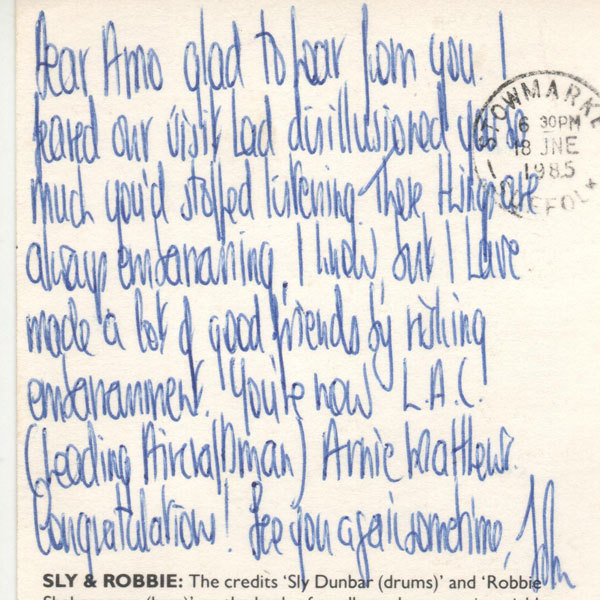 Dear Arno glad to hear from you. I
feared our visit had disillusioned you so
much you'd stopped listening. These things are
always embarrassing, I know, but I have
made a lot of good friends by risking
embarrassment. You're now L.A.C.
(Leading Aircraftman) Arnie Matthews.
Congratulations! See you again sometime, John
STOWMARKE
6 30PM
18 JNE
1985
SUFFOLK
SLY & ROBBIE: The credits 'Sly Dunbar (drums)' and 'Robbie